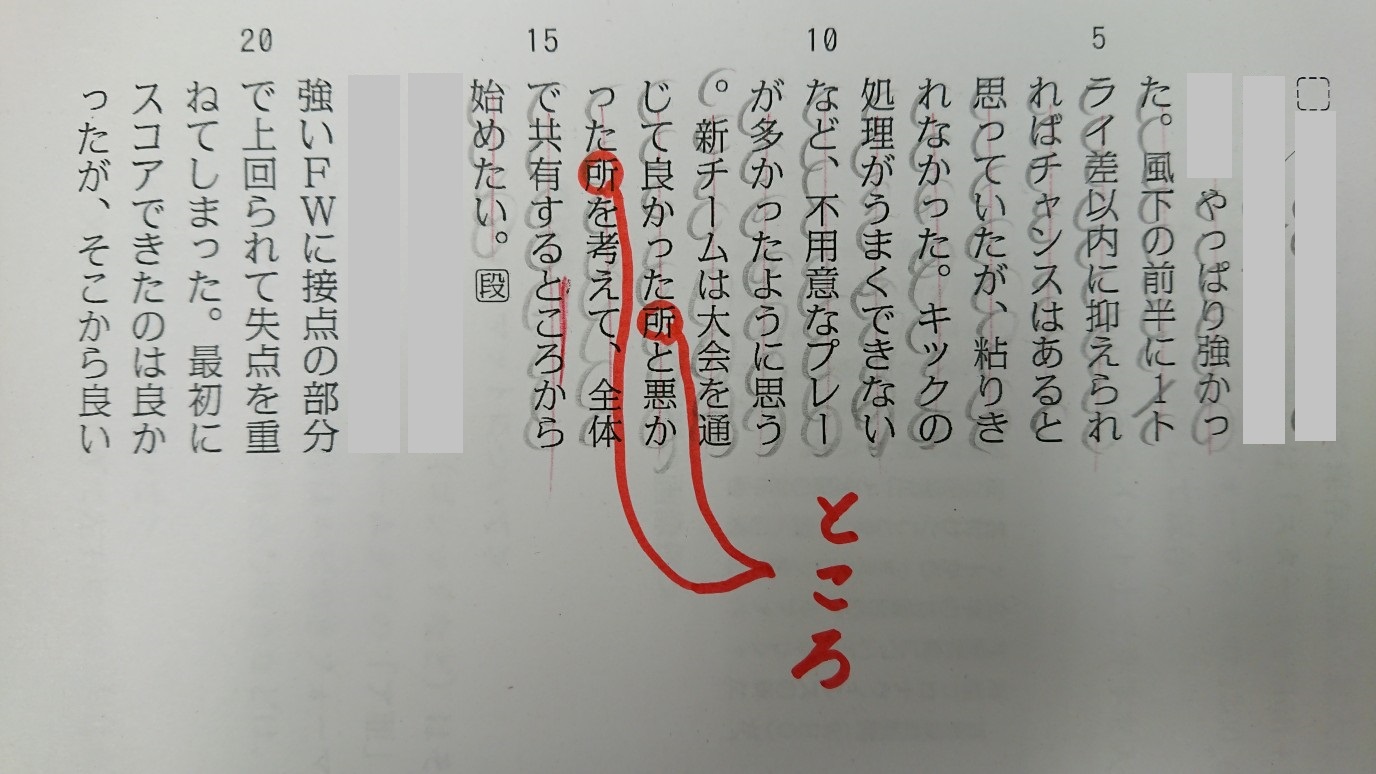 5
10
15
20
やっぱり強かっ
た。風下の前半に1ト
ライ差以内に抑えられ
ればチャンスはあると
思っていたが、粘りき
れなかった。キックの
処理がうまくできない
など、不用意なプレー
が多かったように思う
。新チームは大会を通
じて良かった所と悪か
った所を考えて、全体
で共有するところから
始めたい。段
強いFWに接点の部分
で上回られて失点を重
ねてしまった。最初に
スコアできたのは良か
ったが、そこから良い
ところ